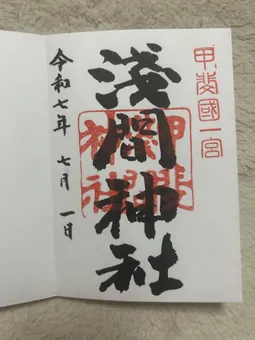 甲斐國一宮
淺間神社
令和七年 七月 一日